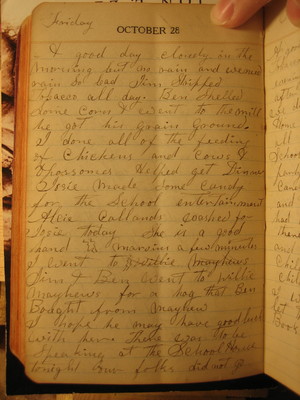 Friday
OCTOBER 28
A good day cloudy in the
morning but no rain and we need
rain so bad Jim Stripped
Tobacco all day. Ben Shelled
Some Corn & went to the mill
he got his grain Ground.
I done all of the feeding
of Chickens and Cows &
Oposomes Helped get Dinner
Josie Made Some Candy
for the School entertainment
Alcie Callands washed for
Josie today She is a good
hand a few minutes
I went to Mayhews
Jim & Ben went to Willie
Mayhews for a hog that Ben
Bought from Mayhew
I hope he may have good luck
with her. There was to be
Speaking at the School House
tonight our folks did not go